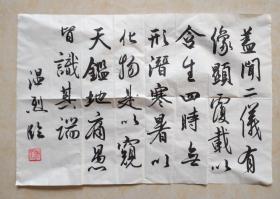 蓋聞二儀有
像顯覆載以
含生四時無
形潛寒暑以
化物是以窺
天鑑地庸愚
皆識其端
温烈臨